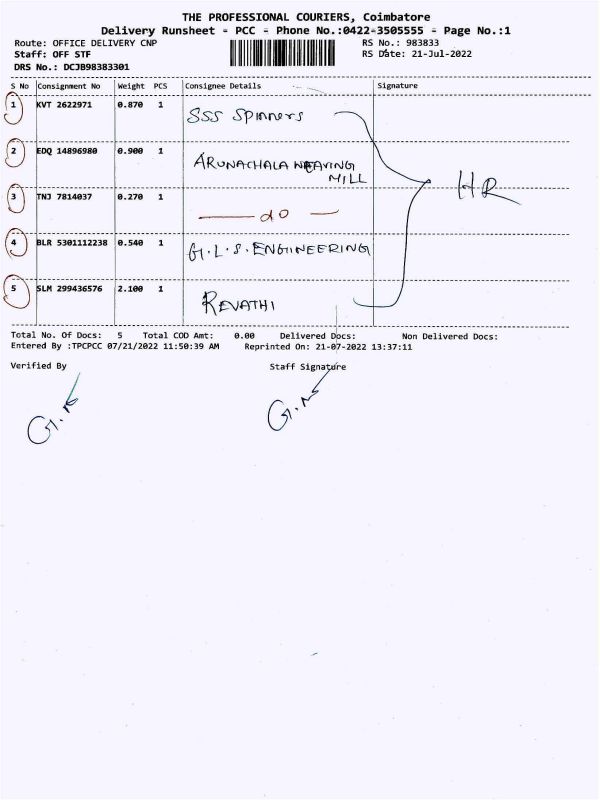 THE PROFESSIONAL COURIERS, Coimbatore
Delivery Runsheet - PCC - Phone No.:0422-3505555 - Page No.:1
Route: OFFICE DELIVERY CNP RS No.: 983833
Staff: OFF STF RS Date: 21-Jul-2022
DRS No.: DCJB98383301
S No Consignment No Weight PCS Consignee Details Signature
1 KVT 2622971 0.870 1 SSS SPINNERS
2 EDQ 14896980 0.900 1 ARUNACHALA WEAVING MILL
HR
3 TNJ 7814037 0.270 1 do
4 BLR 5301112238 0.540 1 G.L.S. ENGINEERING
5 SLM 299436576 2.100 1 REVATHI
Total No. Of Docs: 5 Total COD Amt: 0.00 Delivered Docs: Non Delivered Docs:
Entered By :TPCPCC 07/21/2022 11:50:39 AM Reprinted On: 21-07-2022 13:37:11
Verified By Staff Signature